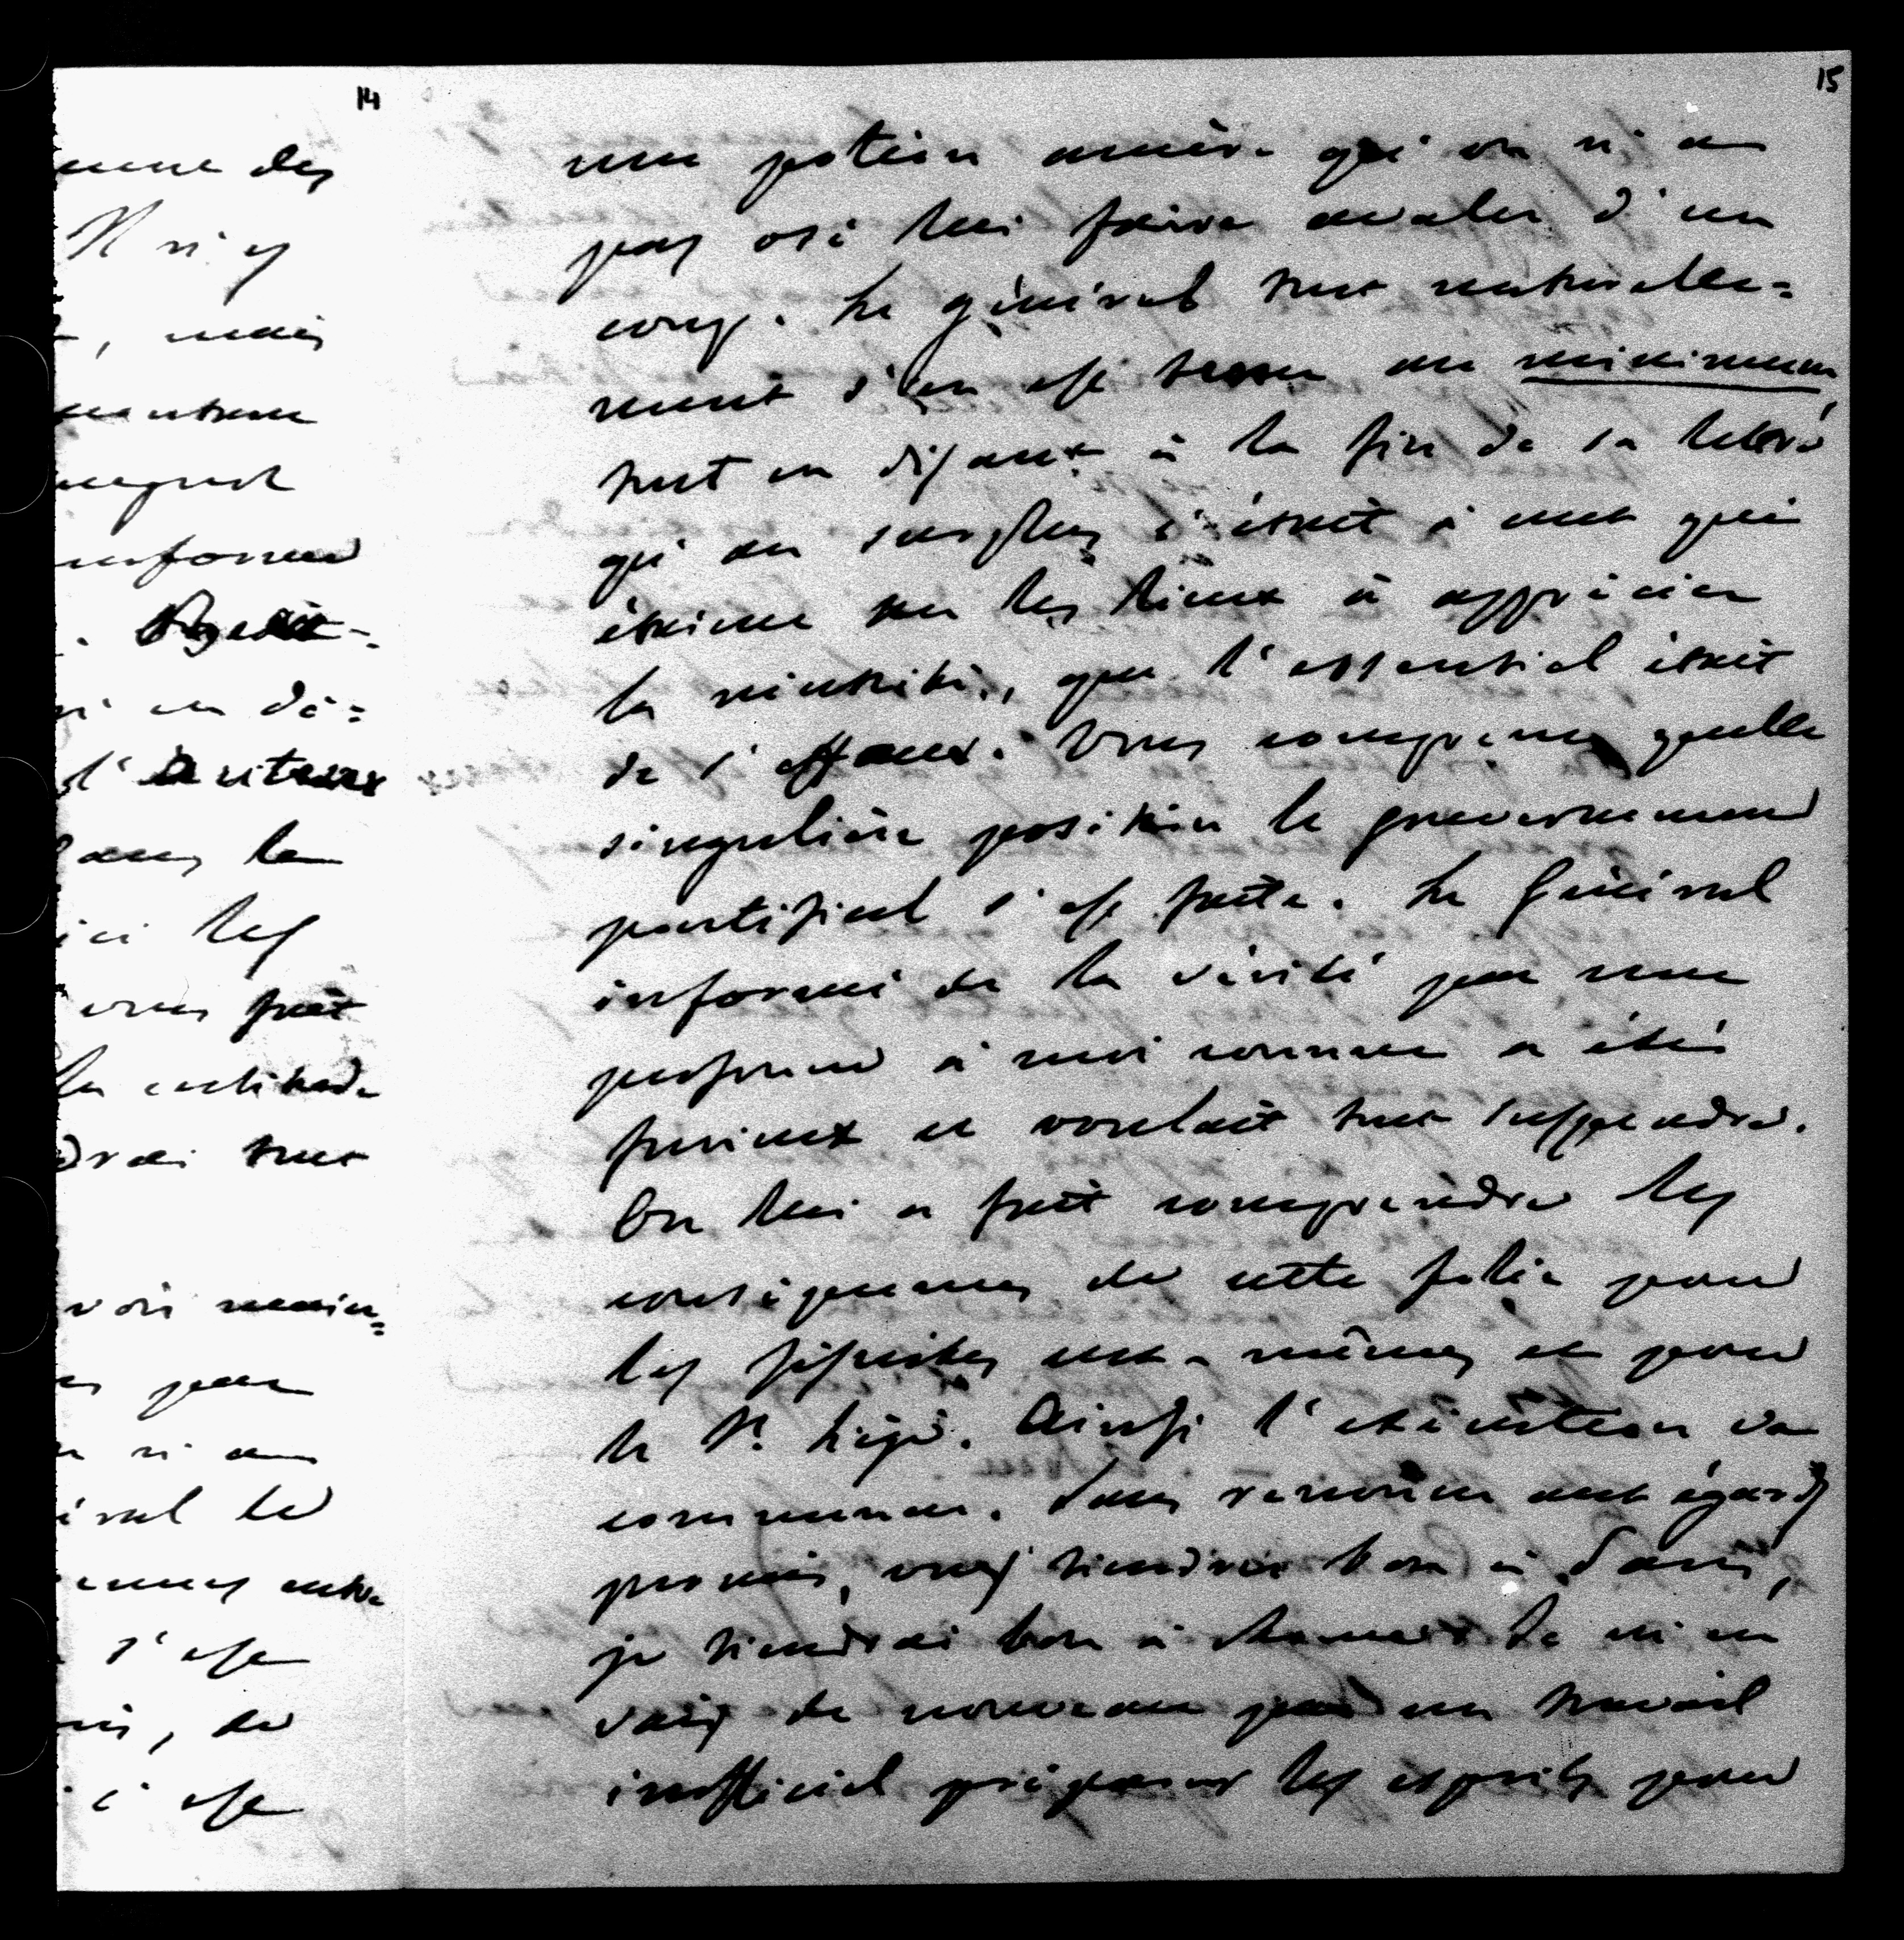 14
mune des
Il n'y
, mais
informer
en dé=
dans la
ici les
vous fait
la certitude
drai tout
voir main=
par
n'a
éral le
entre
s'est
, de
c'est
15
une potion amère qu'on n'a
pas osé lui faire avaler d'un
coup. Le général tout naturelle=
ment s'en est tenu au minimum,
tout en disant à la fin de sa lettre
qu'au surplus c'était à ceux qui
étaient sur les lieux à apprécier
la nécessité, que l'essentiel était
de s'effacer. Vous comprenez quelle
singulière position le gouvernement
pontifical s'est faite. Le Général
informé de la vérité par une
personne à moi connue a été
furieux et voulait tout suspendre.
On lui a fait comprendre les
conséquences de cette folie pour
les jésuites eux-mêmes et pour
le St. Siège. Ainsi l'exécution va
commencer. Sans renoncer aux égards
promis, vous tiendrez bon à Paris,
je tiendrai bon à Rome et de ni en
vais de nouveau par un travail
inofficiel préparer les esprits pour